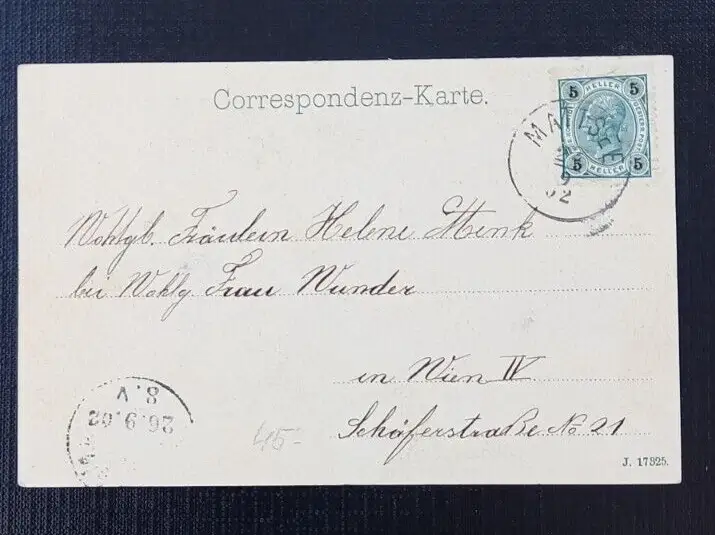 Correspondenz-Karte.
5 HELLER 5
5 HELLER 5
MATTSEE
9
02
Wohlgb. Fräulein Helene Mink
bei Wohlg Frau Wunder
in Wien IV
Schäferstraße No 21
8.V
26.9.02
45-
J. 17925.